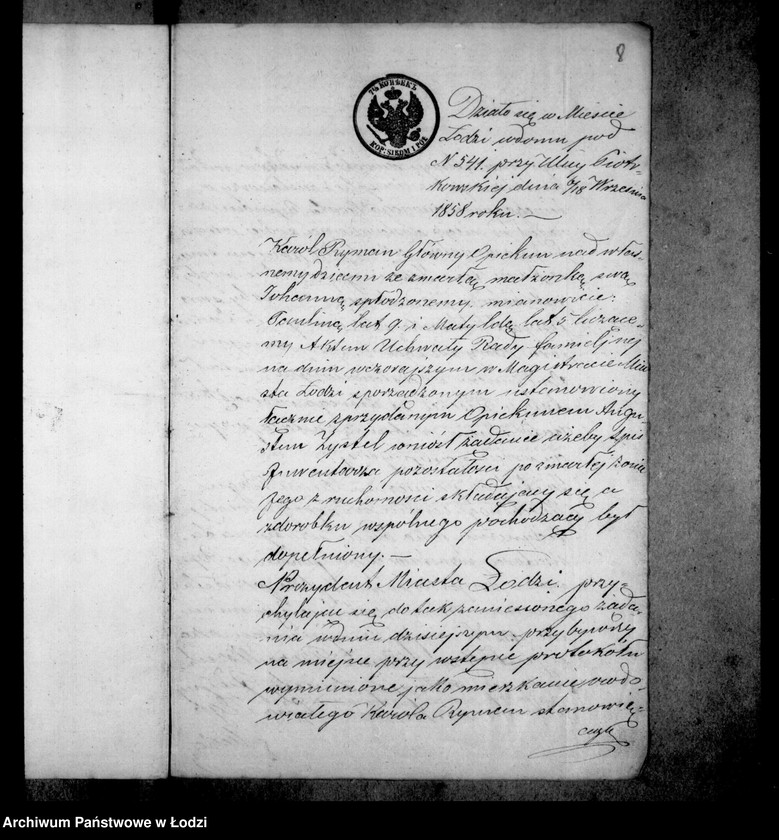 8
7½ KOPĚEKЪ
KOP: SIEDM I PÓŁ
Działo się w Mieście
Łodzi w domu pod
N 541. przy Ulicy Piotr-
kowskiej dnia 6/18 Września
1858 roku. —
Karól Ryman Główny Opiekun nad włas-
nemy dziećmi ze zmarłą małżonką swą
Johanną spłodzonemy, mianowicie:
Pauliną lat 9. i Matyldą lat 5 liczące-
my Aktem Uchwały Rady familijnej
na dniu wczorajszym w Magistracie Mia-
sta Łodzi sporządzonym ustanowiony
łącznie z przydanym Opiekunem Augu-
stem Zystel wniósł żądanie ażeby spis
Inwentarza pozostałości po zmarłej żonie
jego z ruchomości składającej się a
z dorobku wspólnego pochodzącej był
dopełniony. —
Prezydent Miasta Łodzi przy-
chylając się do tak zaniesionego żąda-
nia w dniu dzisiejszym przybywszy
na miejsce przy wstępie protokółu
wymienione jako mieszkanie owdo-
wiałego Karola Ryman stanowią-
cych
Archiwum Państwowe w Łodzi